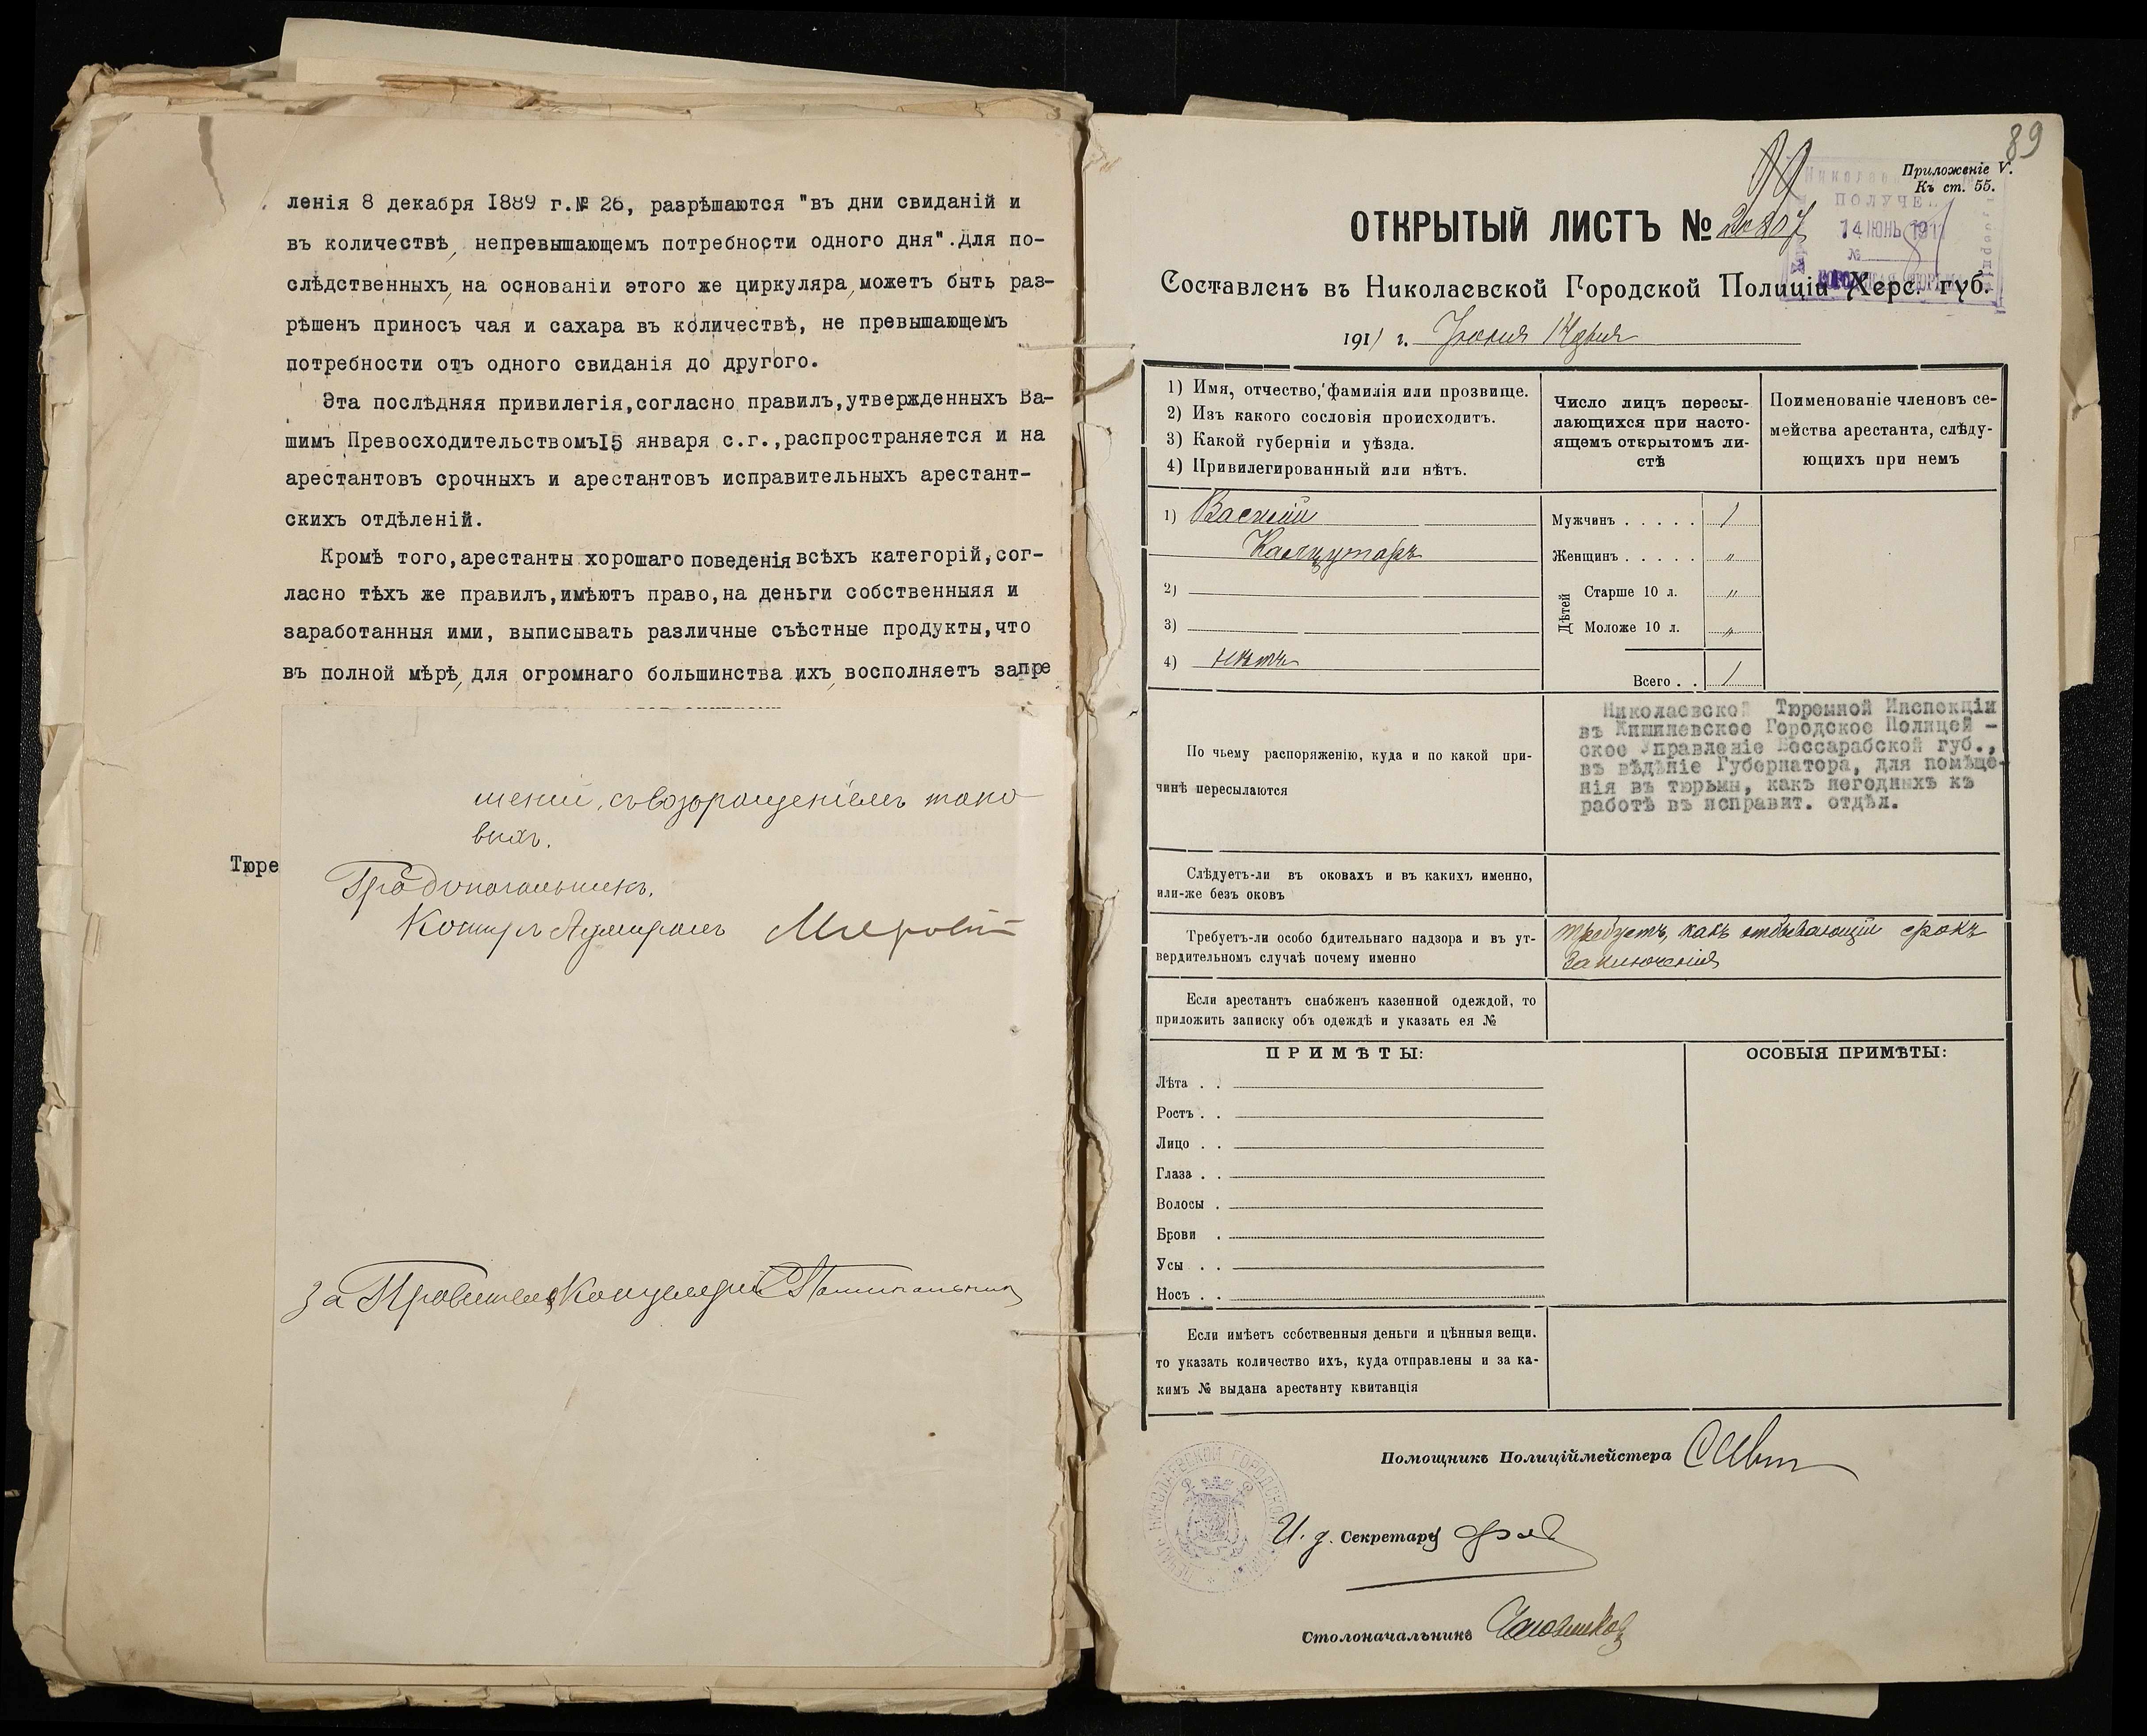 ленія 8 декабря 1889 г.№ 26, разрѣшаются "въ дни свиданій и
въ количествѣ, непревышающемъ потребности одного дня". Для по-
слѣдственныхъ, на основаніи этого же циркуляра, можетъ быть раз-
рѣшенъ приносъ чая и сахара въ количествѣ, не превышающемъ
потребности отъ одного свиданія до другого.
Эта послѣдняя привилегія, согласно правилъ, утвержденныхъ Ва-
шимъ Превосходительствомъ 15 января с.г., распространяется и на
арестантовъ срочныхъ и арестантовъ исправительныхъ арестант-
скихъ отдѣленій.
Кромѣ того, арестанты хорошаго поведенія всѣхъ категорій, сог-
ласно тѣхъ же правилъ, имѣютъ право, на деньги собственныяя и
заработанныя ими, выписывать различные съѣстные продукты, что
въ полной мѣрѣ, для огромнаго большинства ихъ, восполняетъ запре
шеніи, съ возвращеніемъ тако
выхъ.
Тюре
Градоначальникъ,
Контръ Адмиралъ
За Правителя Канцеляріи
89
Приложеніе V.
Къ ст. 55.
ОТКРЫТЫЙ ЛИСТЪ №
ПОЛУЧЕ
14 ІЮНЬ 1911
№
Составленъ въ Николаевской Городской Полиціи Херс. губ.
1911 г. Іюня 14 дня
1) Имя, отчество, фамилія или прозвище.
2) Изъ какого сословія происходитъ.
3) Какой губерніи и уѣзда.
4) Привилегированный или нѣтъ.
Число лицъ пересы-
лающихся при насто-
ящемъ открытомъ ли-
стѣ
Поименованіе членовъ се-
мейства арестанта, слѣду-
ющихъ при немъ
1) Василій
2)
3)
4) нѣтъ
Мужчинъ . . . . . 1
Женщинъ . . . . . "
Дѣтей
Старше 10 л. "
Моложе 10 л. "
Всего . . 1
По чьему распоряженію, куда и по какой при-
чинѣ пересылаются
Николаевской Тюремной Инспекціи
въ Кишиневское Городское Полицей -
ское Управленіе Бессарабской губ.,
въ вѣдѣніе Губернатора, для помѣще-
нія въ тюрьмы, какъ негодныхъ къ
работѣ въ исправит. отдѣл.
Слѣдуетъ-ли въ оковахъ и въ какихъ именно,
или-же безъ оковъ
Требуетъ-ли особо бдительнаго надзора и въ ут-
вердительномъ случаѣ почему именно
требуетъ, какъ отбывающій срокъ
заключенія
Если арестантъ снабженъ казенной одеждой, то
приложить записку объ одеждѣ и указать ея №
ПРИМѢТЫ:
ОСОБЫЯ ПРИМѢТЫ:
Лѣта . .
Ростъ . .
Лицо . .
Глаза . .
Волосы .
Брови .
Усы . .
Носъ . .
Если имѣетъ собственныя деньги и цѣнныя вещи.
то указать количество ихъ, куда отправлены и за ка-
кимъ № выдана арестанту квитанція
Помощникъ Полиціймейстера
И. д. Секретаря
Столоначальникъ